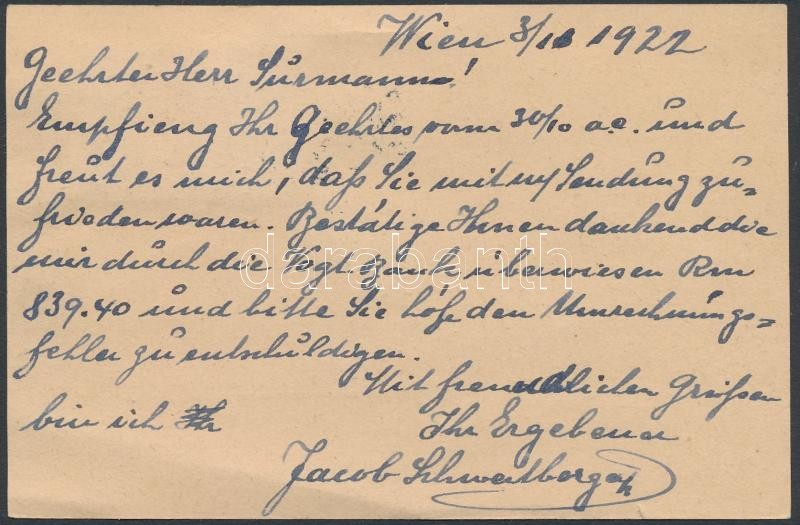 Wien 3/11 1922
Geehrter Herr Surmann!
Empfieng Ihr Geehrtes vom 30/10 a.c. und
freut es mich, daß Sie mit m/ Sendung zu=
frieden waren. Bestätige Ihnen dankend die
mir durch die Vogt. Bank überwiesen Rm
839.40 und bitte Sie höfl. den Umrechnungs=
fehler zu entschuldigen.
Mit freundlichen Grüßen
bin ich Ihr Ergebener
Jacob
darabanth